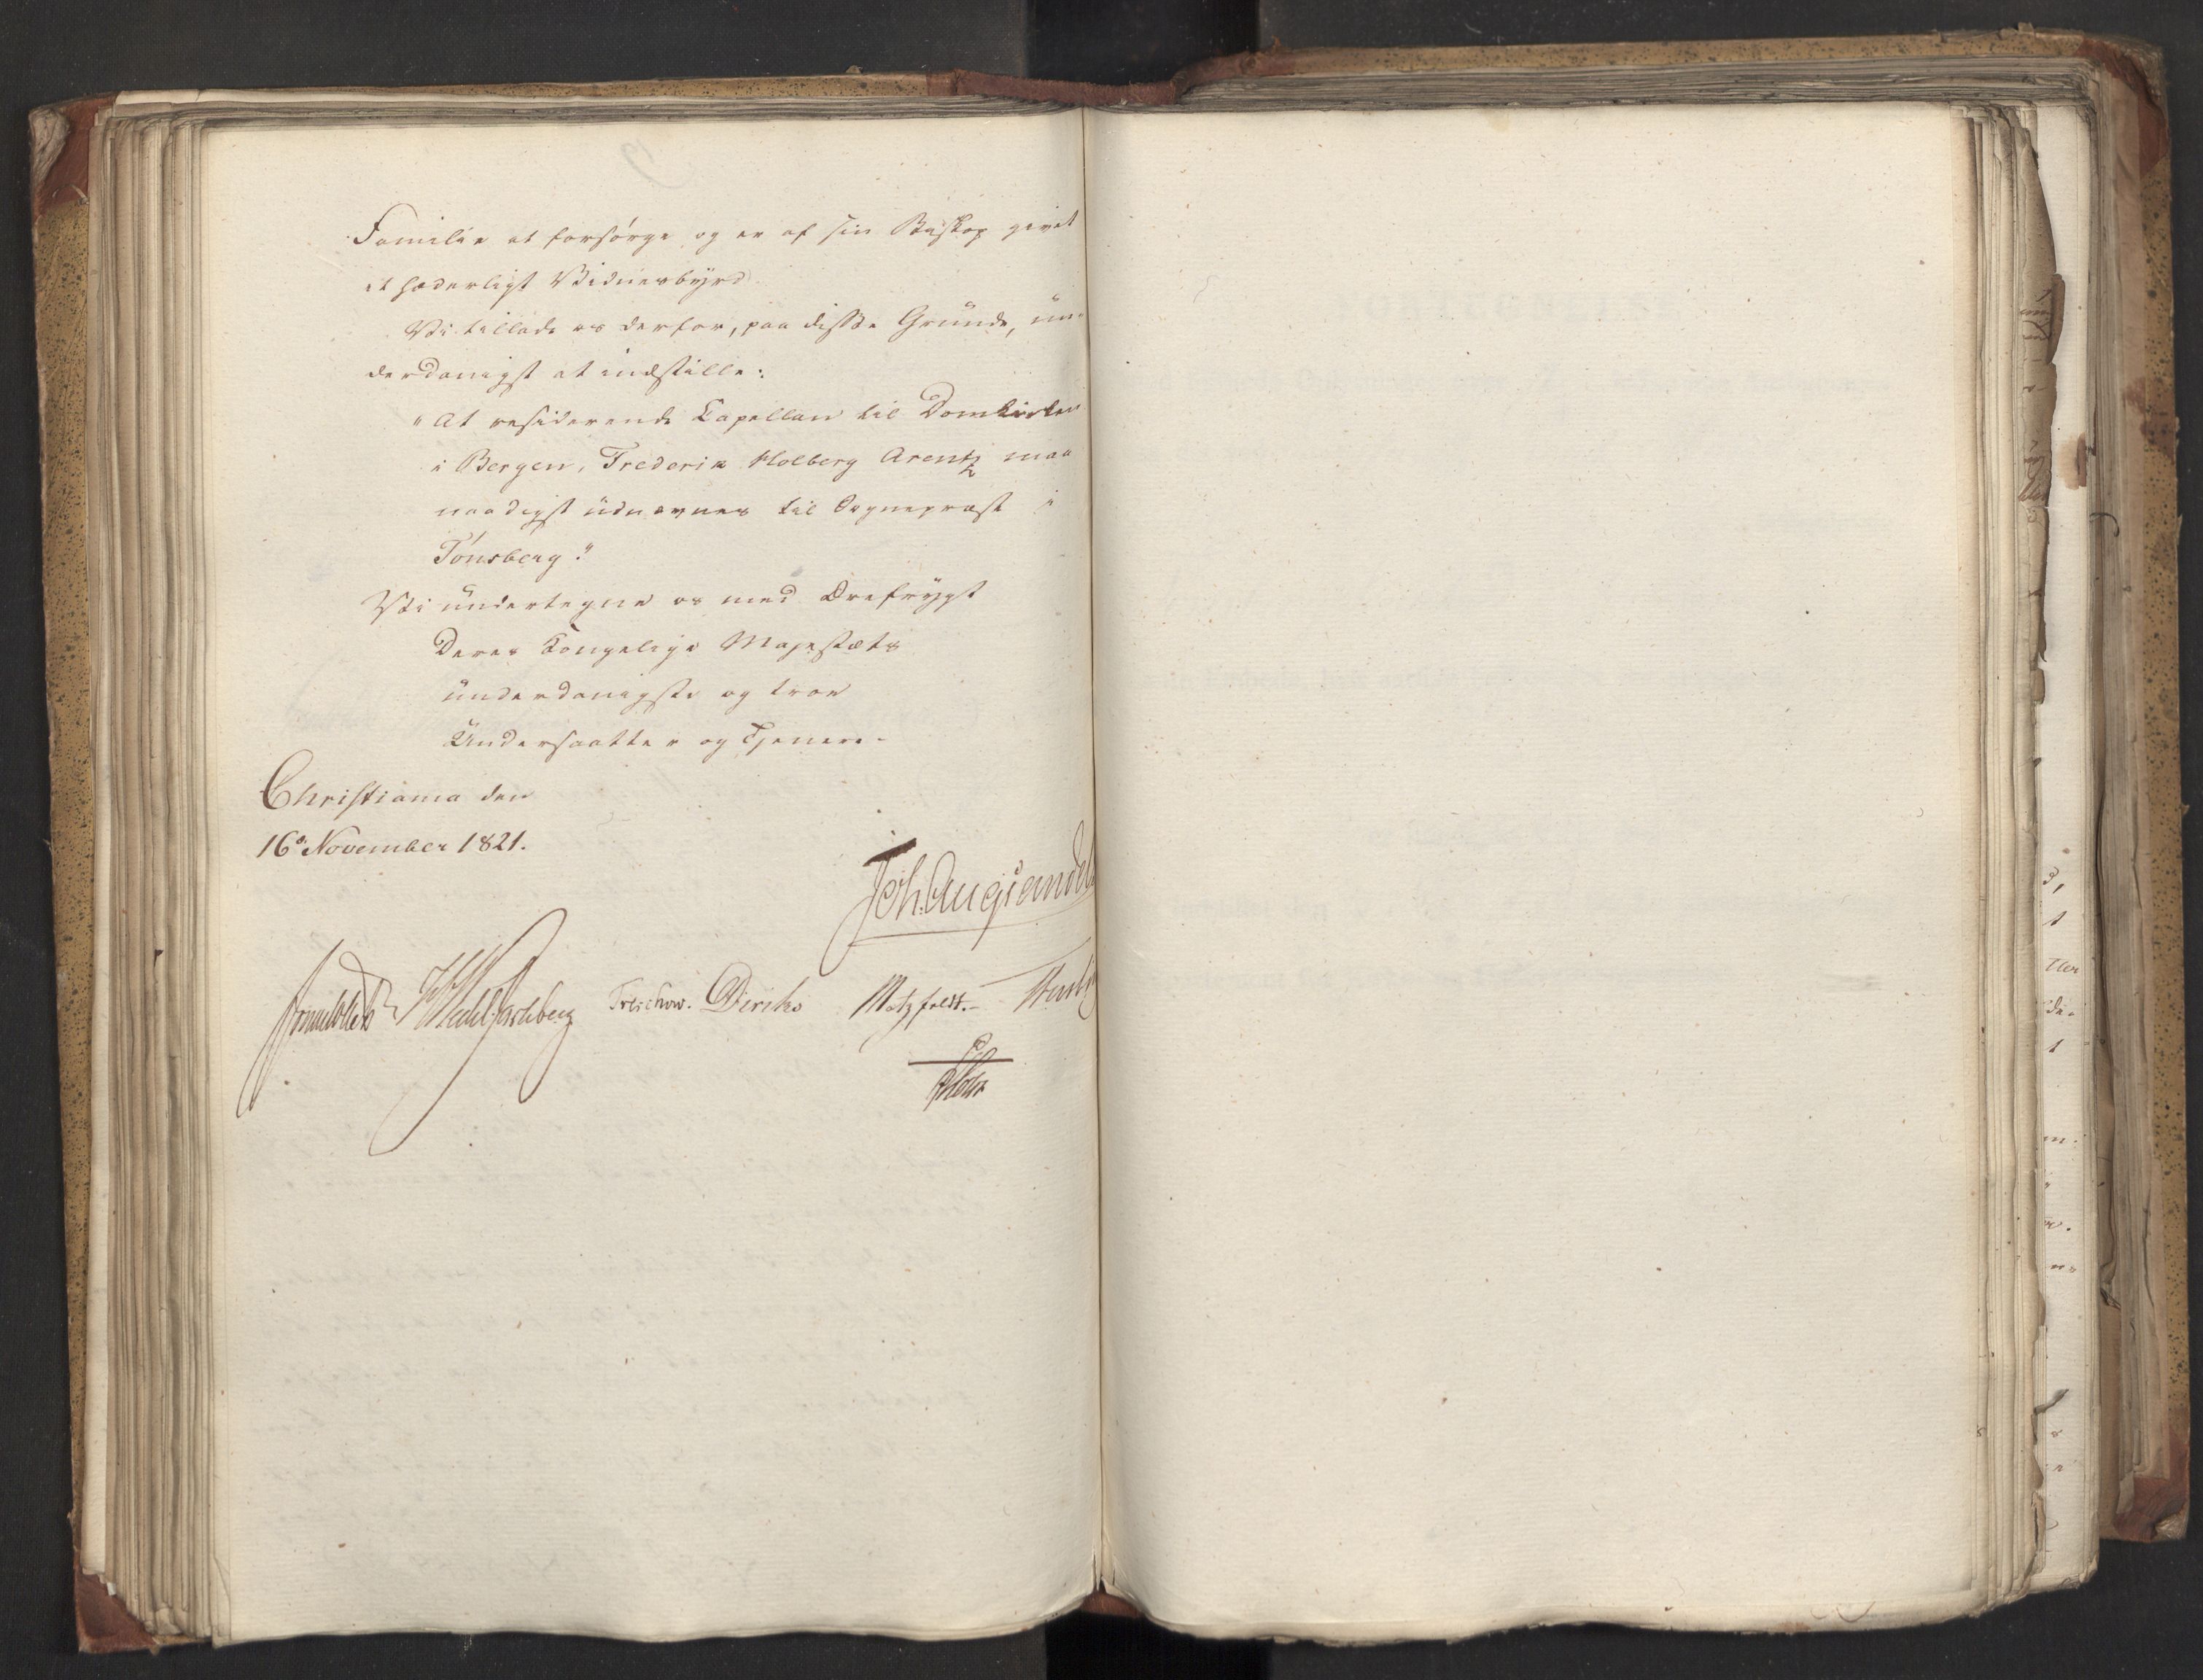 Familie at forsørge og er af sin Biskop givet
et hæderligt Vidnesbyrd.
Vi tillade os derfor, paa disse Grunde, un-
derdanigst at indstille:
"At residerende Capellan til Domkirken
i Bergen, Frederik Holberg Arentz maa
naadigst udnævnes til Sognepræst i
Tønsberg."
Vi undertegne os med Ærefrygt
Deres Kongelige Majestæts
underdanigste og troe
Undersaatter og Tjenere.
Christiania den
16de November 1821.
Joh. Aug Sandels
Sommerhielm Wedel Jarlsberg Treschow. Diriks Motzfeldt.
Holst